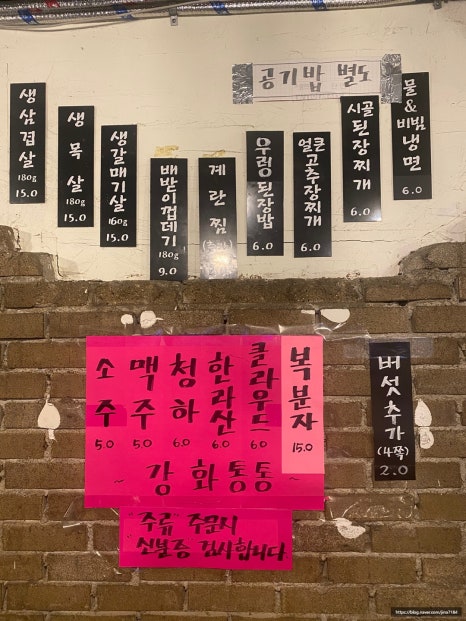 공기밥 별도
생삼겹살 180g 15.0
생목살 180g 15.0
생갈매기살 160g 15.0
배받이껍데기 180g 9.0
계란찜
우렁된장밥 6.0
얼큰고추장찌개 6.0
시골된장찌개 6.0
물&비빔냉면 6.0
소주 5.0
맥주 5.0
청하 6.0
한라산 6.0
클라우드 6.0
복분자 15.0
~ 강화통통 ~
버섯추가 (4쪽) 2.0
"주류" 주문시
신분증 검사합니다
https://blog.naver.com/jina7184